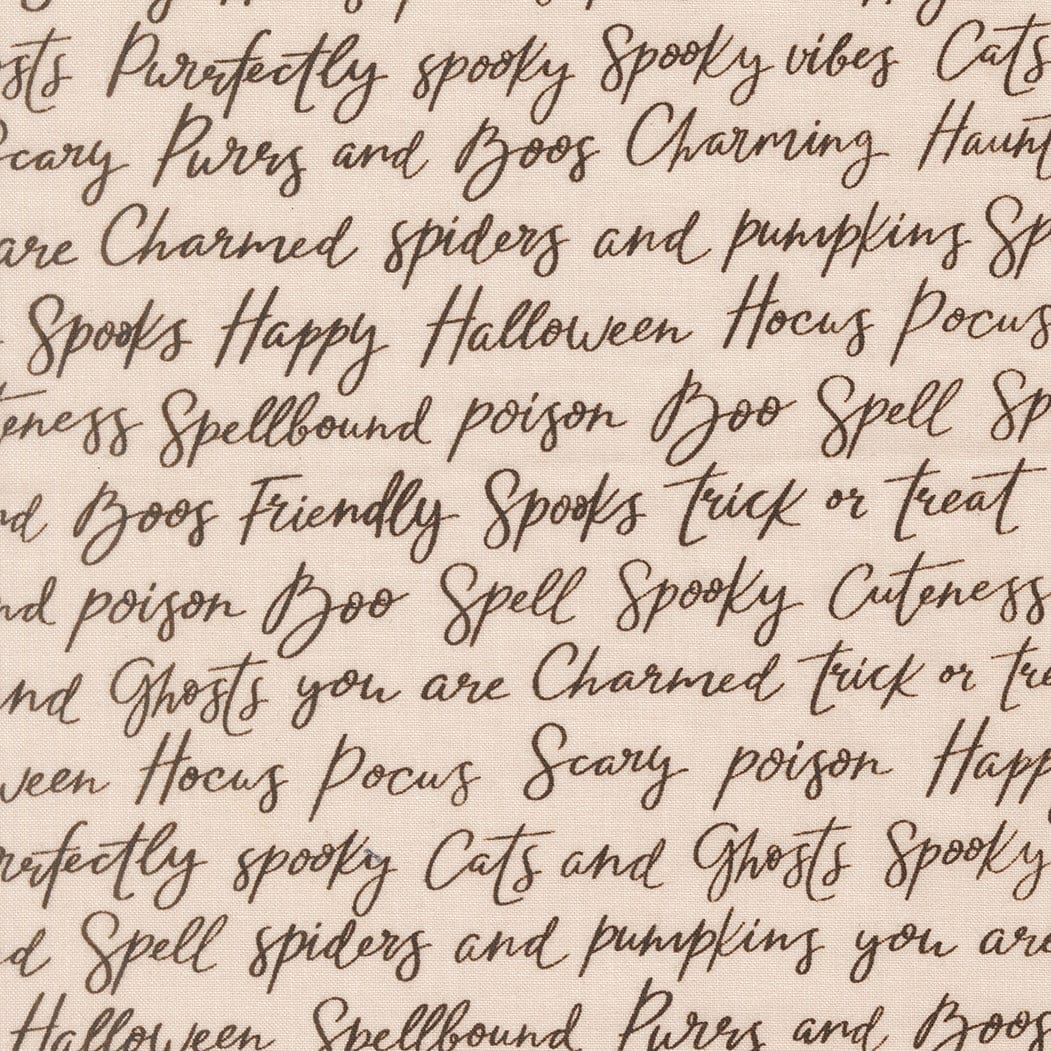 sts Purrfectly spooky Spooky vibes Cats
Scary Purrs and Boos Charming Haunt
are Charmed spiders and pumpkins Sp
Spooks Happy Halloween Hocus Pocus
teness Spellbound poison Boo Spell Sp
nd Boos Friendly Spooks trick or treat
nd poison Boo Spell Spooky Cuteness
and Ghosts you are Charmed trick or tre
ween Hocus Pocus Scary poison Happy
urrfectly spooky Cats and Ghosts Spooky
d Spell spiders and pumpkins you are
Halloween Spellbound Purrs and Boos